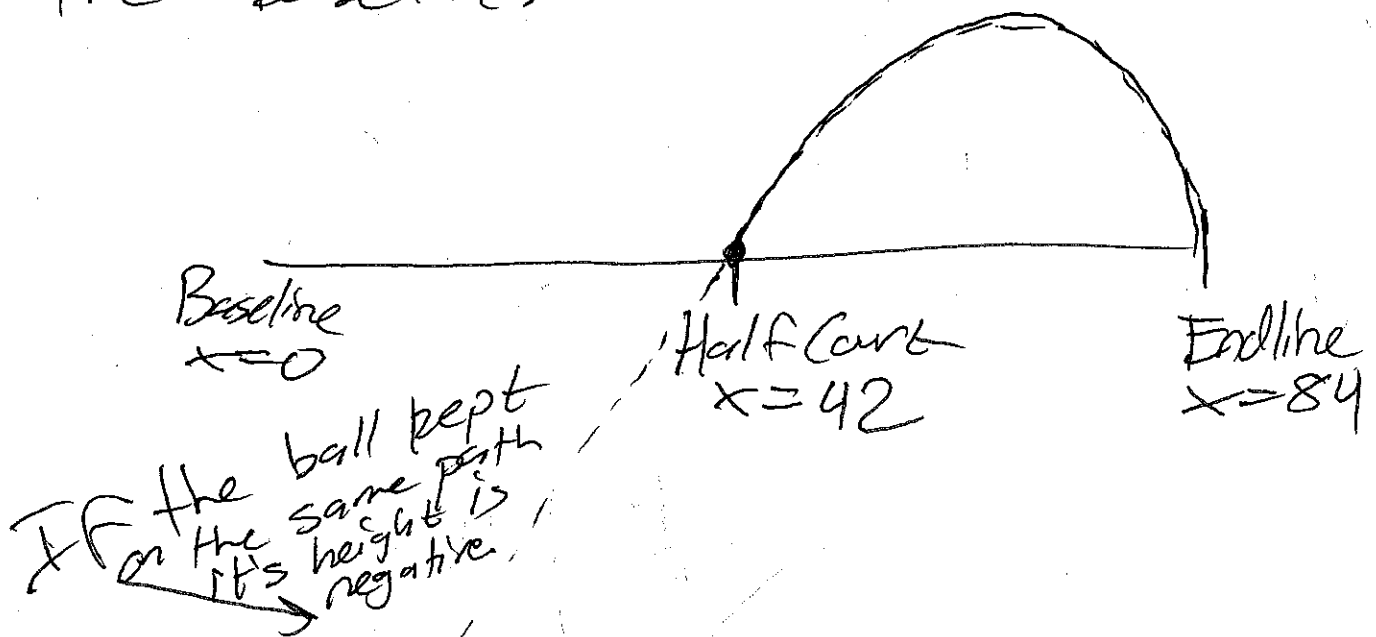 Baseline
x=0
Half Court
x=42
Endline
x=84
If the ball kept
on the same path
it's height is
negative.